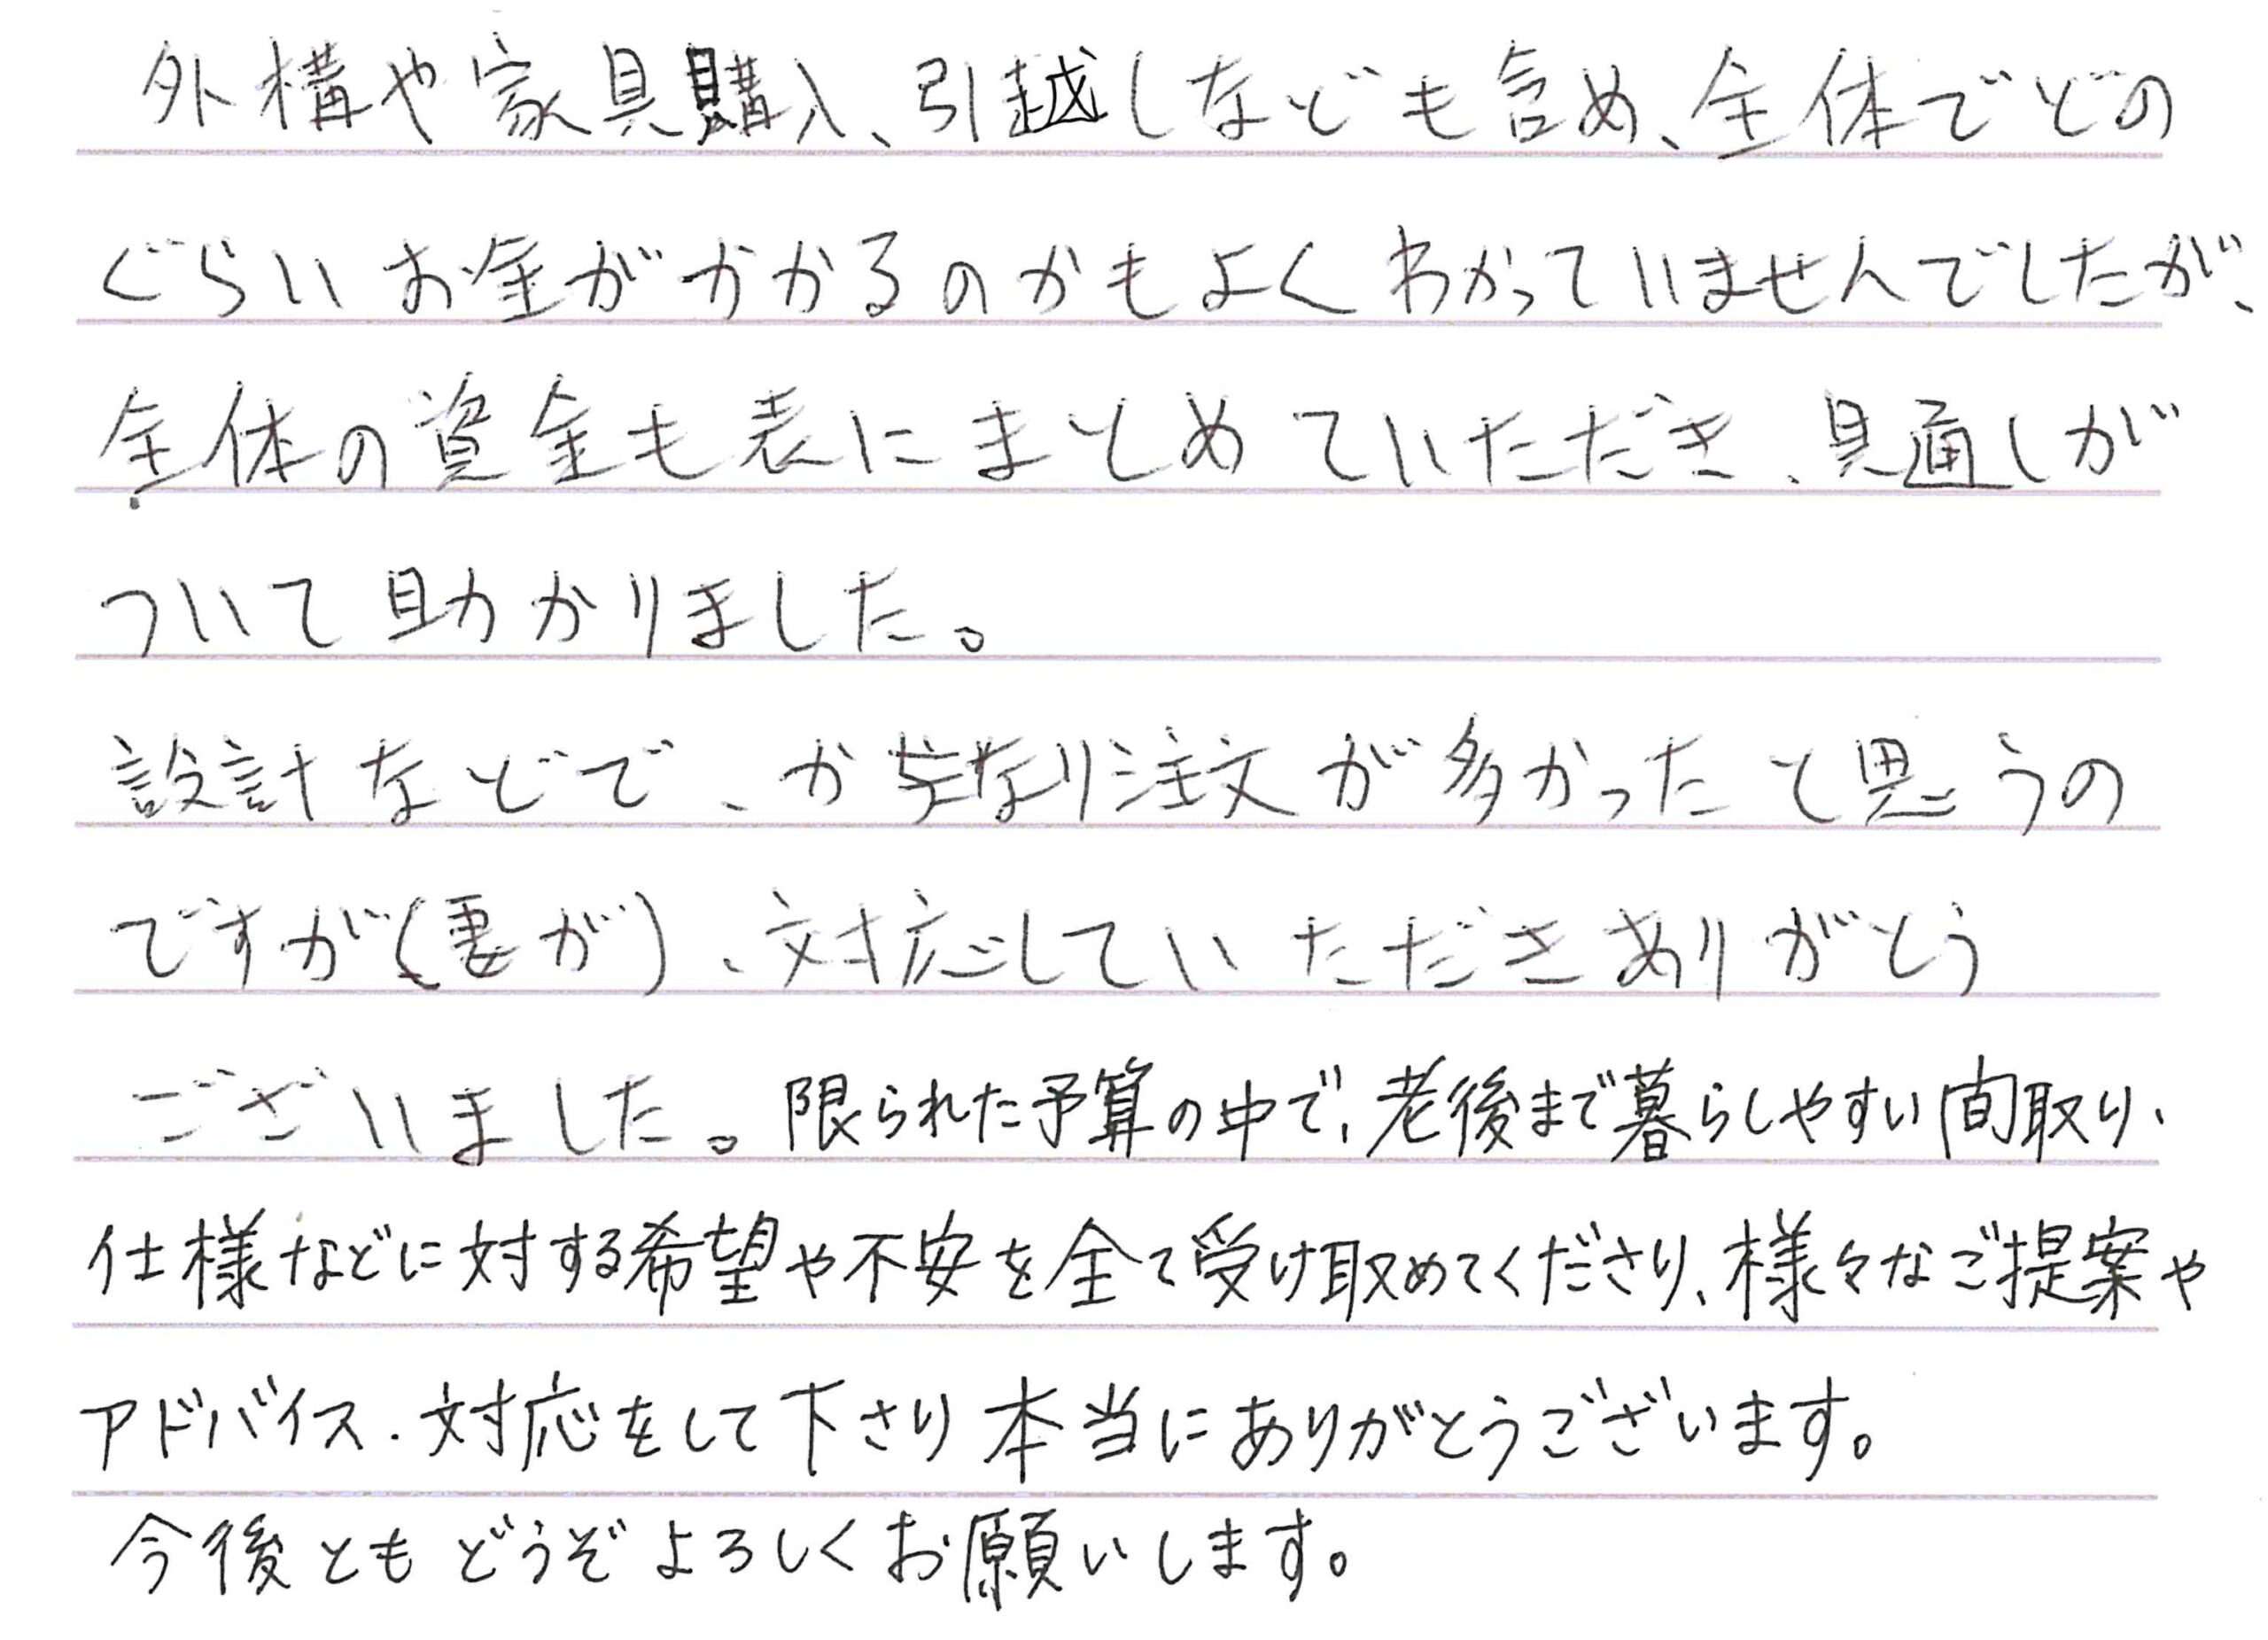 外構や家具購入、引越しなども含め、全体でどの
ぐらいお金がかかるのかもよくわかっていませんでしたが、
全体の資金も表にまとめていただき、見通しが
ついて助かりました。
設計などで、かなり注文が多かったと思うの
ですが(妻が)、対応していただきありがとう
ございました。限られた予算の中で、老後まで暮らしやすい間取り、
仕様などに対する希望や不安を全て受け取めてくださり、様々なご提案や
アドバイス・対応をして下さり本当にありがとうございます。
今後ともどうぞよろしくお願いします。